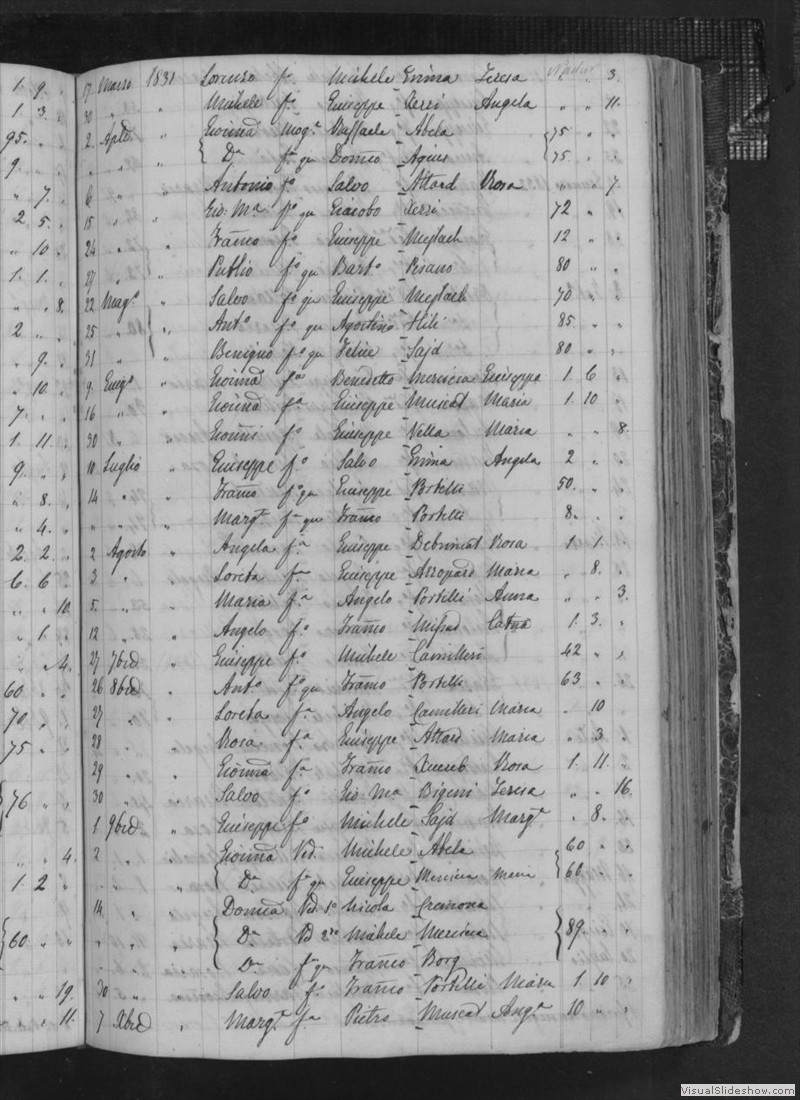 1. 9. 17 Marzo 1831 Lorenzo f.º Michele Grima Teresa " " 3.
1 3. 30 " " Michele f.º Giuseppe Xerri Angela " " 11.
95. 2. Aple. " Gioanna Mog.e Raffaele Abela { 75 " "
9. " " " { Da f.a qu Domco Agius { 75 " "
" 7. 6 " " Antonio f.º Salvo Attard Rosa " " 7.
2 5. 15 " " Gio: Ma f.º qu Giacobo Xerri 72 " "
" 10. 24 " " Franco f.º Giuseppe Meylach 12 " "
1. 1. 27 " " Publio f.º qu Barto Pisano 80 " "
" " 8. 22 Mag.o " Salvo f.º qu Giuseppe Meylach 70 " "
2 " " 25 " " Ant.o f.º qu Agostino Hili 85. " "
" 9. 31 " " Benigno f.º qu Felice Sajd 80 " "
" 10. 9. Giug.o " Gioanna f.a Benedetto Mercieca Giuseppa 1. 6 "
7. " " 16 " " Gioanna f.a Giuseppe Muscat Maria 1. 10 "
1. 11. " 30 " " Gioanni f.º Giuseppe Vella Maria " " 8.
9. " " 10 Luglio " Giuseppe f.º Salvo Grima Angela 2 " "
" 8. " 14 " " Franco f.º qu Giuseppe Portelli 50. " "
" 4. " " " " Marg.ta f.a qu Franco Portelli 8. " "
2 2. " 2 Agosto " Angela f.a Giuseppe Debrincat Rosa 1. 1. "
6. 6 " 3 " " Loreta f.a Giuseppe Azzopard Maria " 8. "
" " 10. 5. " " Maria f.a Angelo Portelli Anna " " 3.
" 1. " 12 " " Angelo f.º Franco Mifsud Catna 1. 3. "
" " 4. 27 7bre " Giuseppe f.º Michele Camilleri 42 " "
60 " " 26 8bre " Ant.o f.º qu Franco Portelli 63. " "
70 " " 27 " " Loreta f.a Angelo Camilleri Maria " 10
75 " " 28 " " Rosa f.a Giuseppe Attard Maria " 3 "
29 " " Gioanna f.a Franco Xuereb Rosa 1. 11. "
{ 76 " " 30 " " Salvo f.º Gio: Ma Bigeni Teresa " " 16.
1. 9bre " Giuseppe f.º Michele Sajd Marg.ta " 8. "
" " 4. 2 " " { Gioanna Ved. Michele Abela { 60 " "
1. 2 " " " " { Da f.a qu Giuseppe Mercieca Maria { 60 " "
14. " " { Domca Ved. 1º Nicola Cremona
{ 60 " " " " " { Da Vd 2do Michele Mercieca { 89. " "
{ Da f.a qu Franco Borg
" " 19. 30 " " Salvo f.º Franco Portelli Maria 1. 10 "
" " 11. 7 Xbre " Marg.ta f.a Pietro Muscat Ang.a 10 " "
VisualSlideshow.com